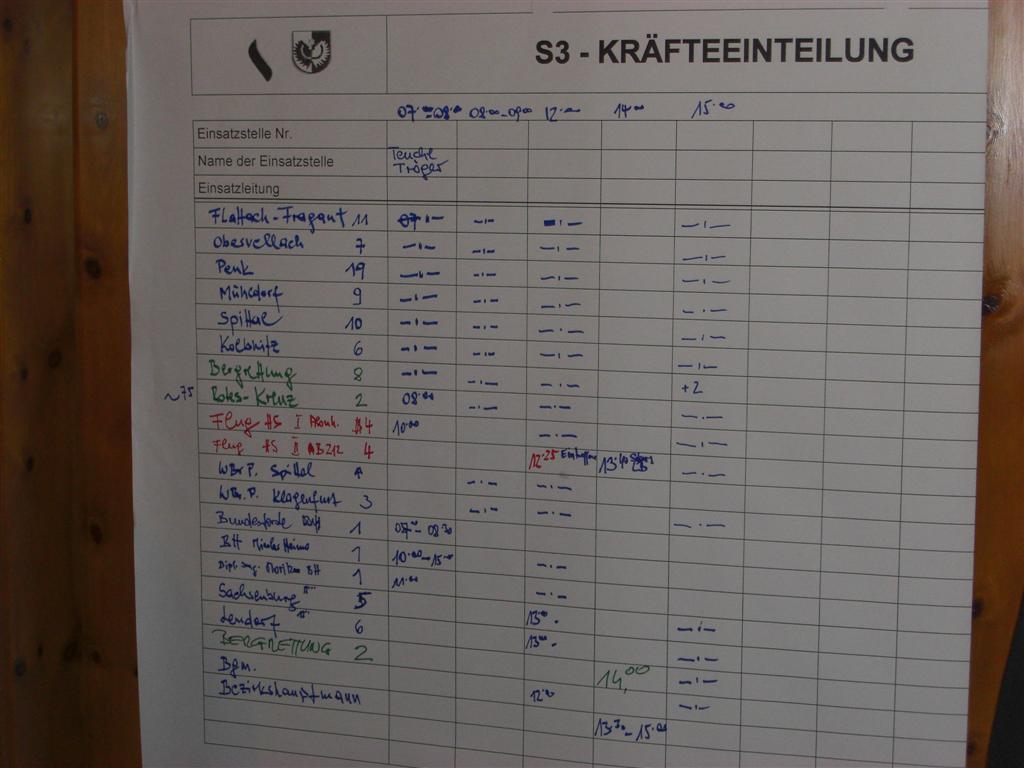 S3 - KRÄFTEEINTEILUNG
08.00-09.00 12.00 14.00 15.00
Einsatzstelle Nr.
Name der Einsatzstelle
Tröger
Einsatzleitung
Flattach-Fragant 11 -.- -.- -.- -.-
Obervellach 7 -.- -.- -.- -.-
Penk 19 -.- -.- -.- -.-
Mühldorf 9 -.- -.- -.- -.-
Spittal 10 -.- -.- -.- -.-
Kolbnitz 6 -.- -.- -.- -.-
Bergrettung 8 -.- -.- -.- +2
~75 Rotes-Kreuz 2 08.00 -.- -.- -.-
Flug HS I 4 10.00 -.- -.-
Flug HS II AB212 4 12.25 13.40
WBr.P. Spittal -.- -.- -.-
WBr.P. Klagenfurt 3 -.- -.-
1 07.00-08.30 -.-
BH 1 10.00-15.00 -.-
Dipl. Ing. BH 1 11.00 -.-
Sachsenburg 5 13.00 -.-
Lendorf 6 13.00 -.-
BERGRETTUNG 2 14,00 -.-
Bgm. 12.00 -.-
Bezirkshauptmann 13.30-15.00